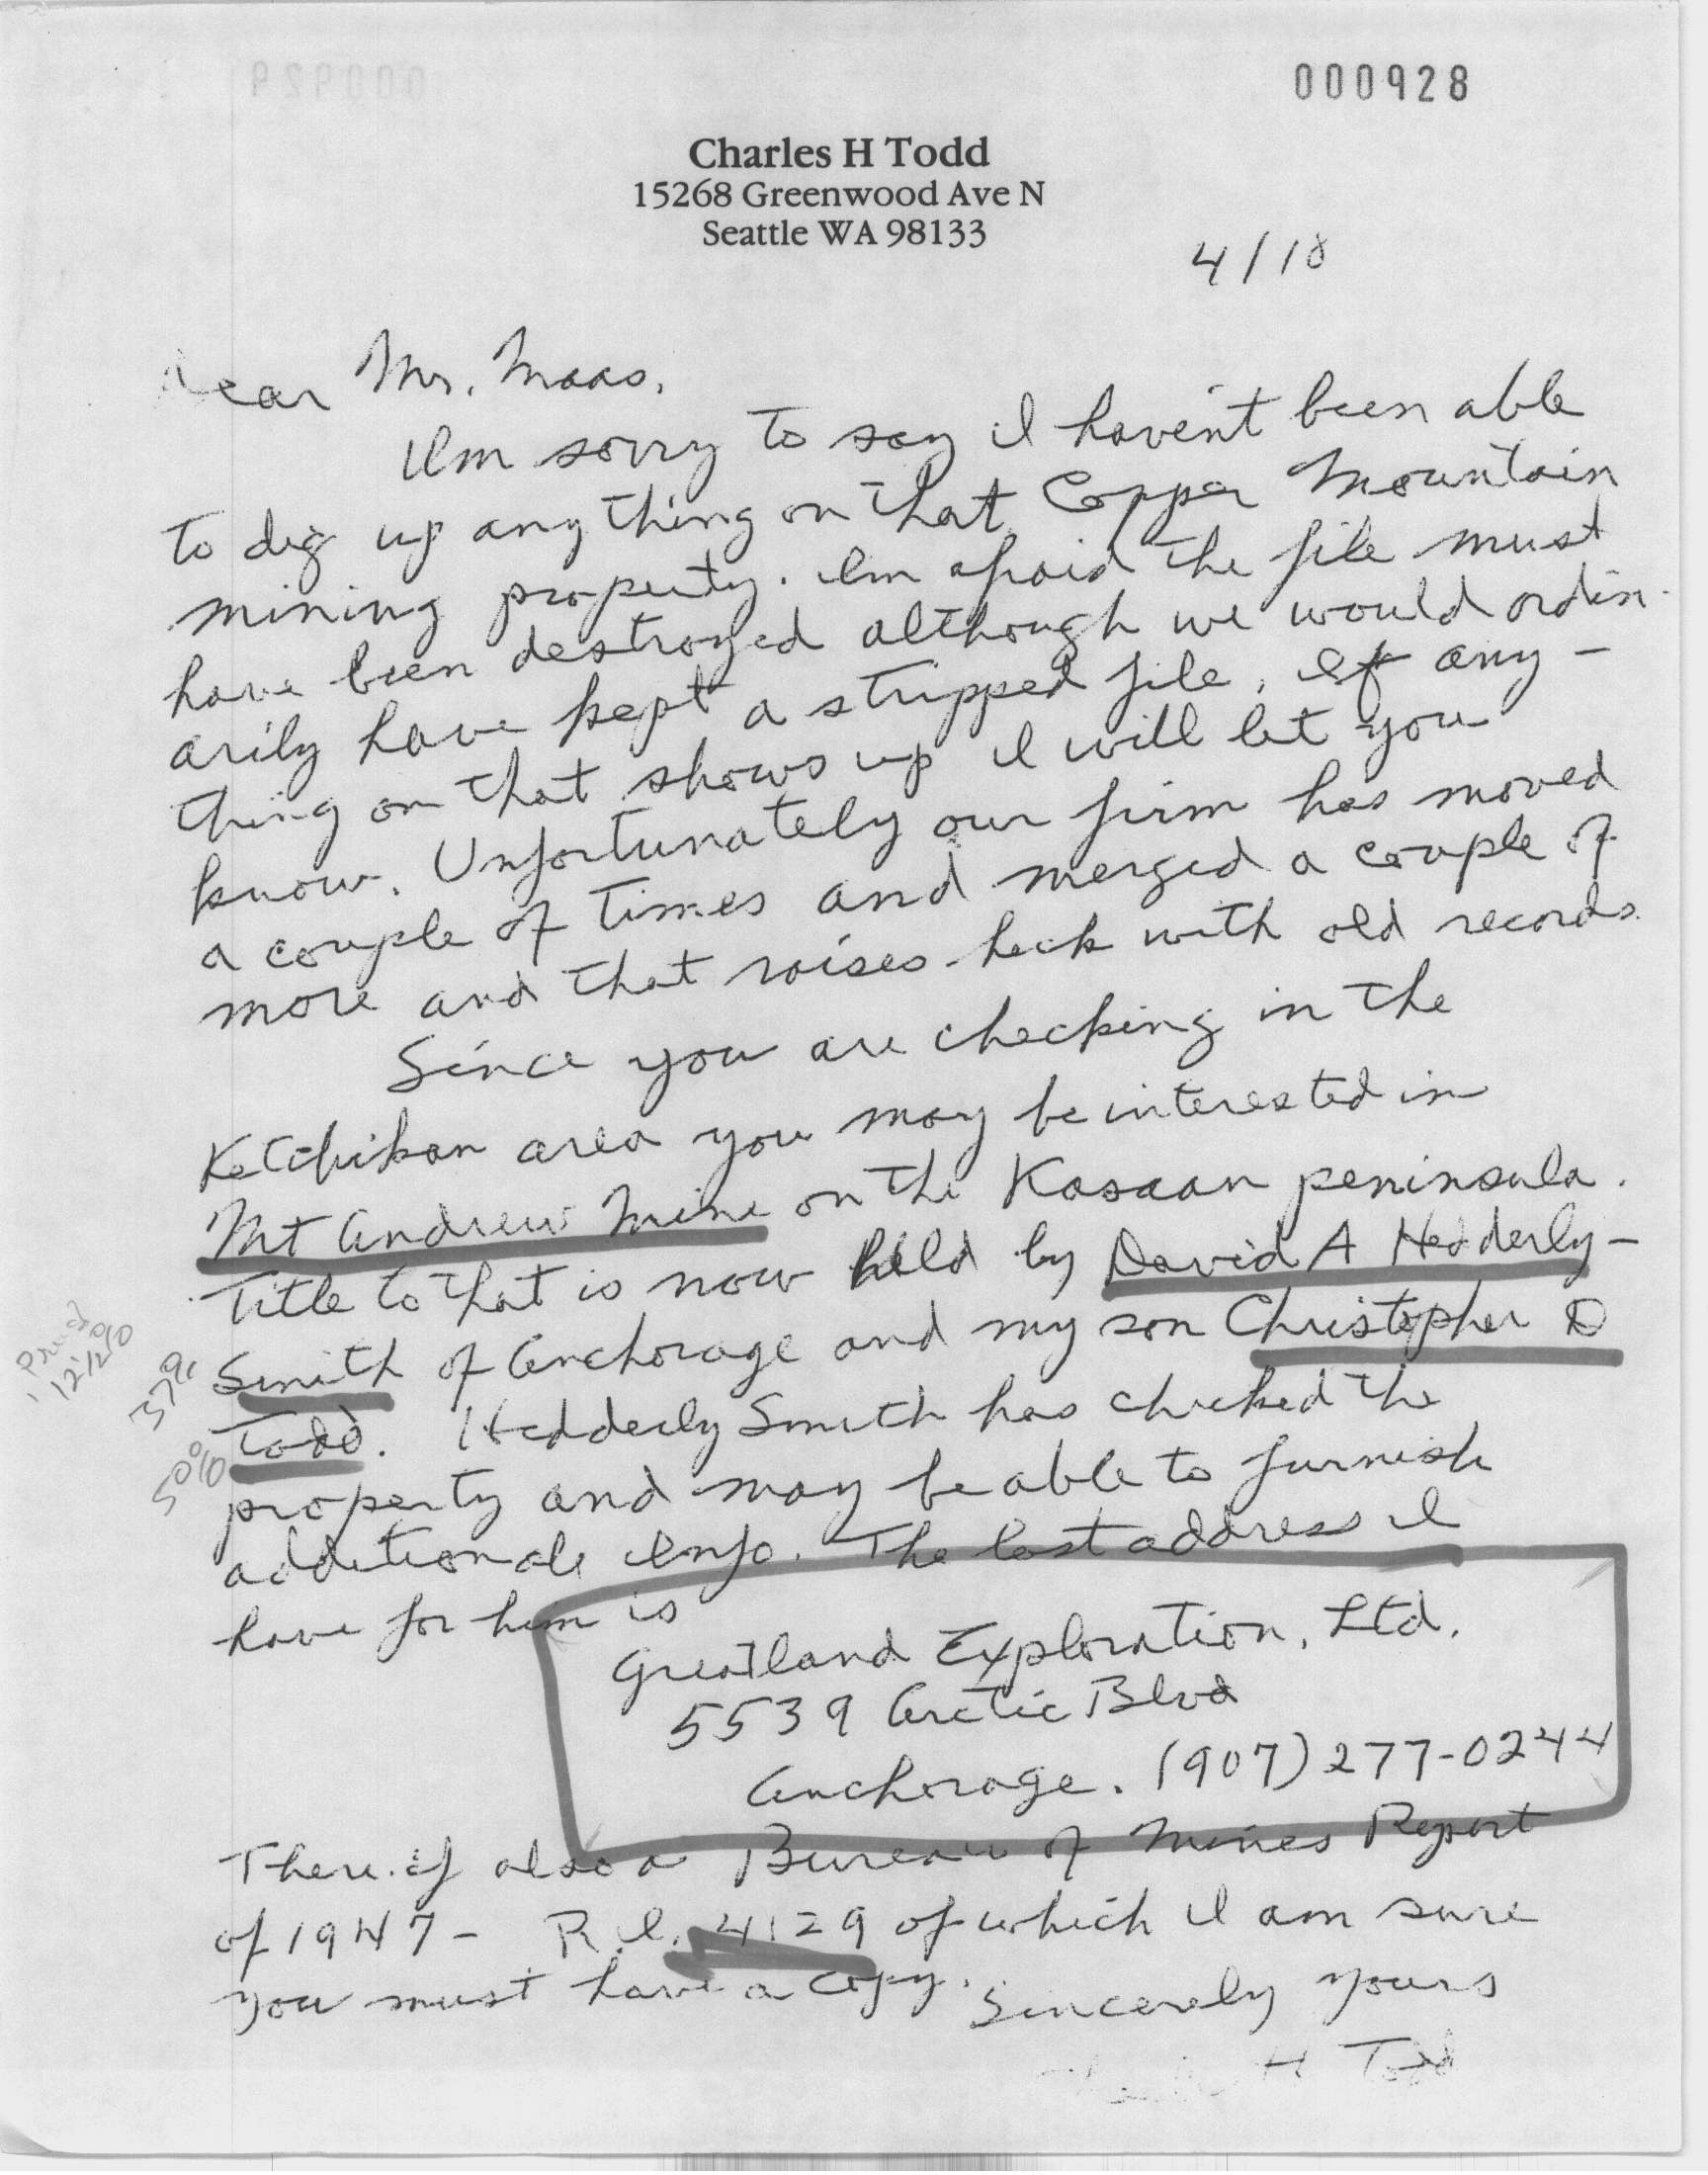 000928
Charles H Todd
15268 Greenwood Ave N
Seattle WA 98133
4/18
Dear Mr. Maas,
I'm sorry to say I haven't been able
to dig up anything on that Copper Mountain
mining property. I'm afraid the file must
have been destroyed although we would ordin-
arily have kept a stripped file. If any-
thing on that shows up I will let you
know. Unfortunately our firm has moved
a couple of times and merged a couple of
more and that raises heck with old records.
Since you are checking in the
Ketchikan area you may be interested in
Mt Andrew Mine on the Kasaan peninsula.
Title to that is now held by David A Hedderly-
Smith of Anchorage and my son Christopher D
Todd. Hedderly Smith has checked the
property and may be able to furnish
additional info. The last address I
have for him is
Greatland Exploration, Ltd.
5539 Arctic Blvd
Anchorage. (907) 277-0244
There if also a Bureau of Mines Report
of 1947 - R.I. 4129 of which I am sure
you must have a copy.
Sincerely yours
H Todd
12 1/2 %
37%
50%